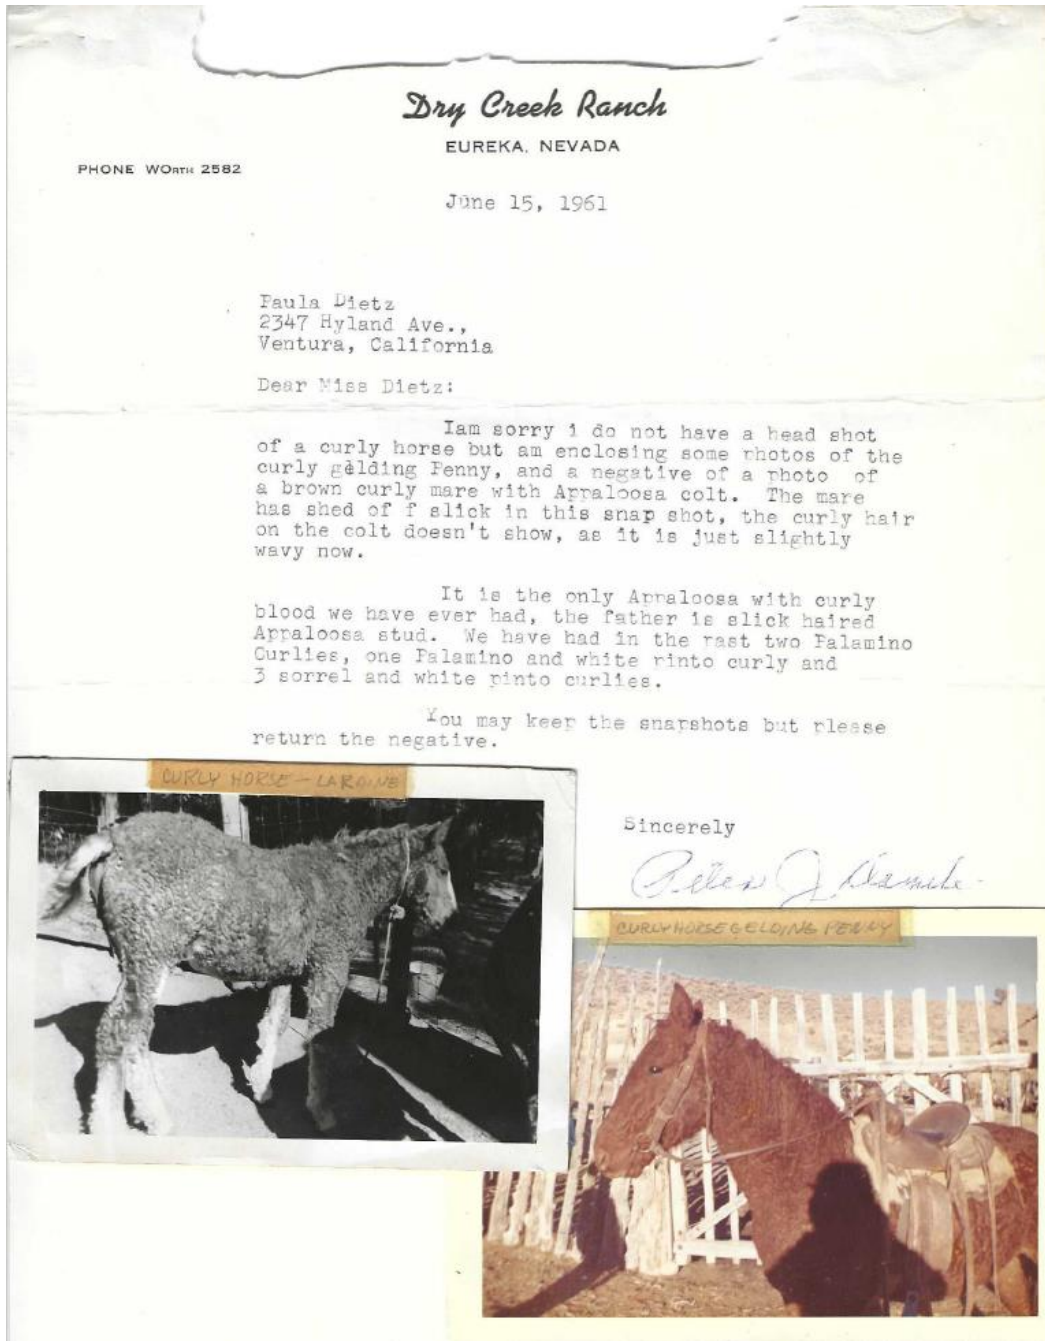 Dry Creek Ranch
EUREKA, NEVADA
PHONE WORTH 2582
June 15, 1961
Paula Dietz
2347 Hyland Ave.,
Ventura, California
Dear Miss Dietz:
Iam sorry i do not have a head shot
of a curly horse but am enclosing some photos of the
curly gelding Penny, and a negative of a photo of
a brown curly mare with Appaloosa colt. The mare
has shed of f slick in this snap shot, the curly hair
on the colt doesn't show, as it is just slightly
wavy now.
It is the only Appaloosa with curly
blood we have ever had, the father is slick haired
Appaloosa stud. We have had in the past two Palamino
Curlies, one Palamino and white pinto curly and
3 sorrel and white pinto curlies.
You may keep the snapshots but please
return the negative.
Sincerely
Peter J Damele
CURLY HORSE - LARAINE
CURLY HORSE GELDING PENNY